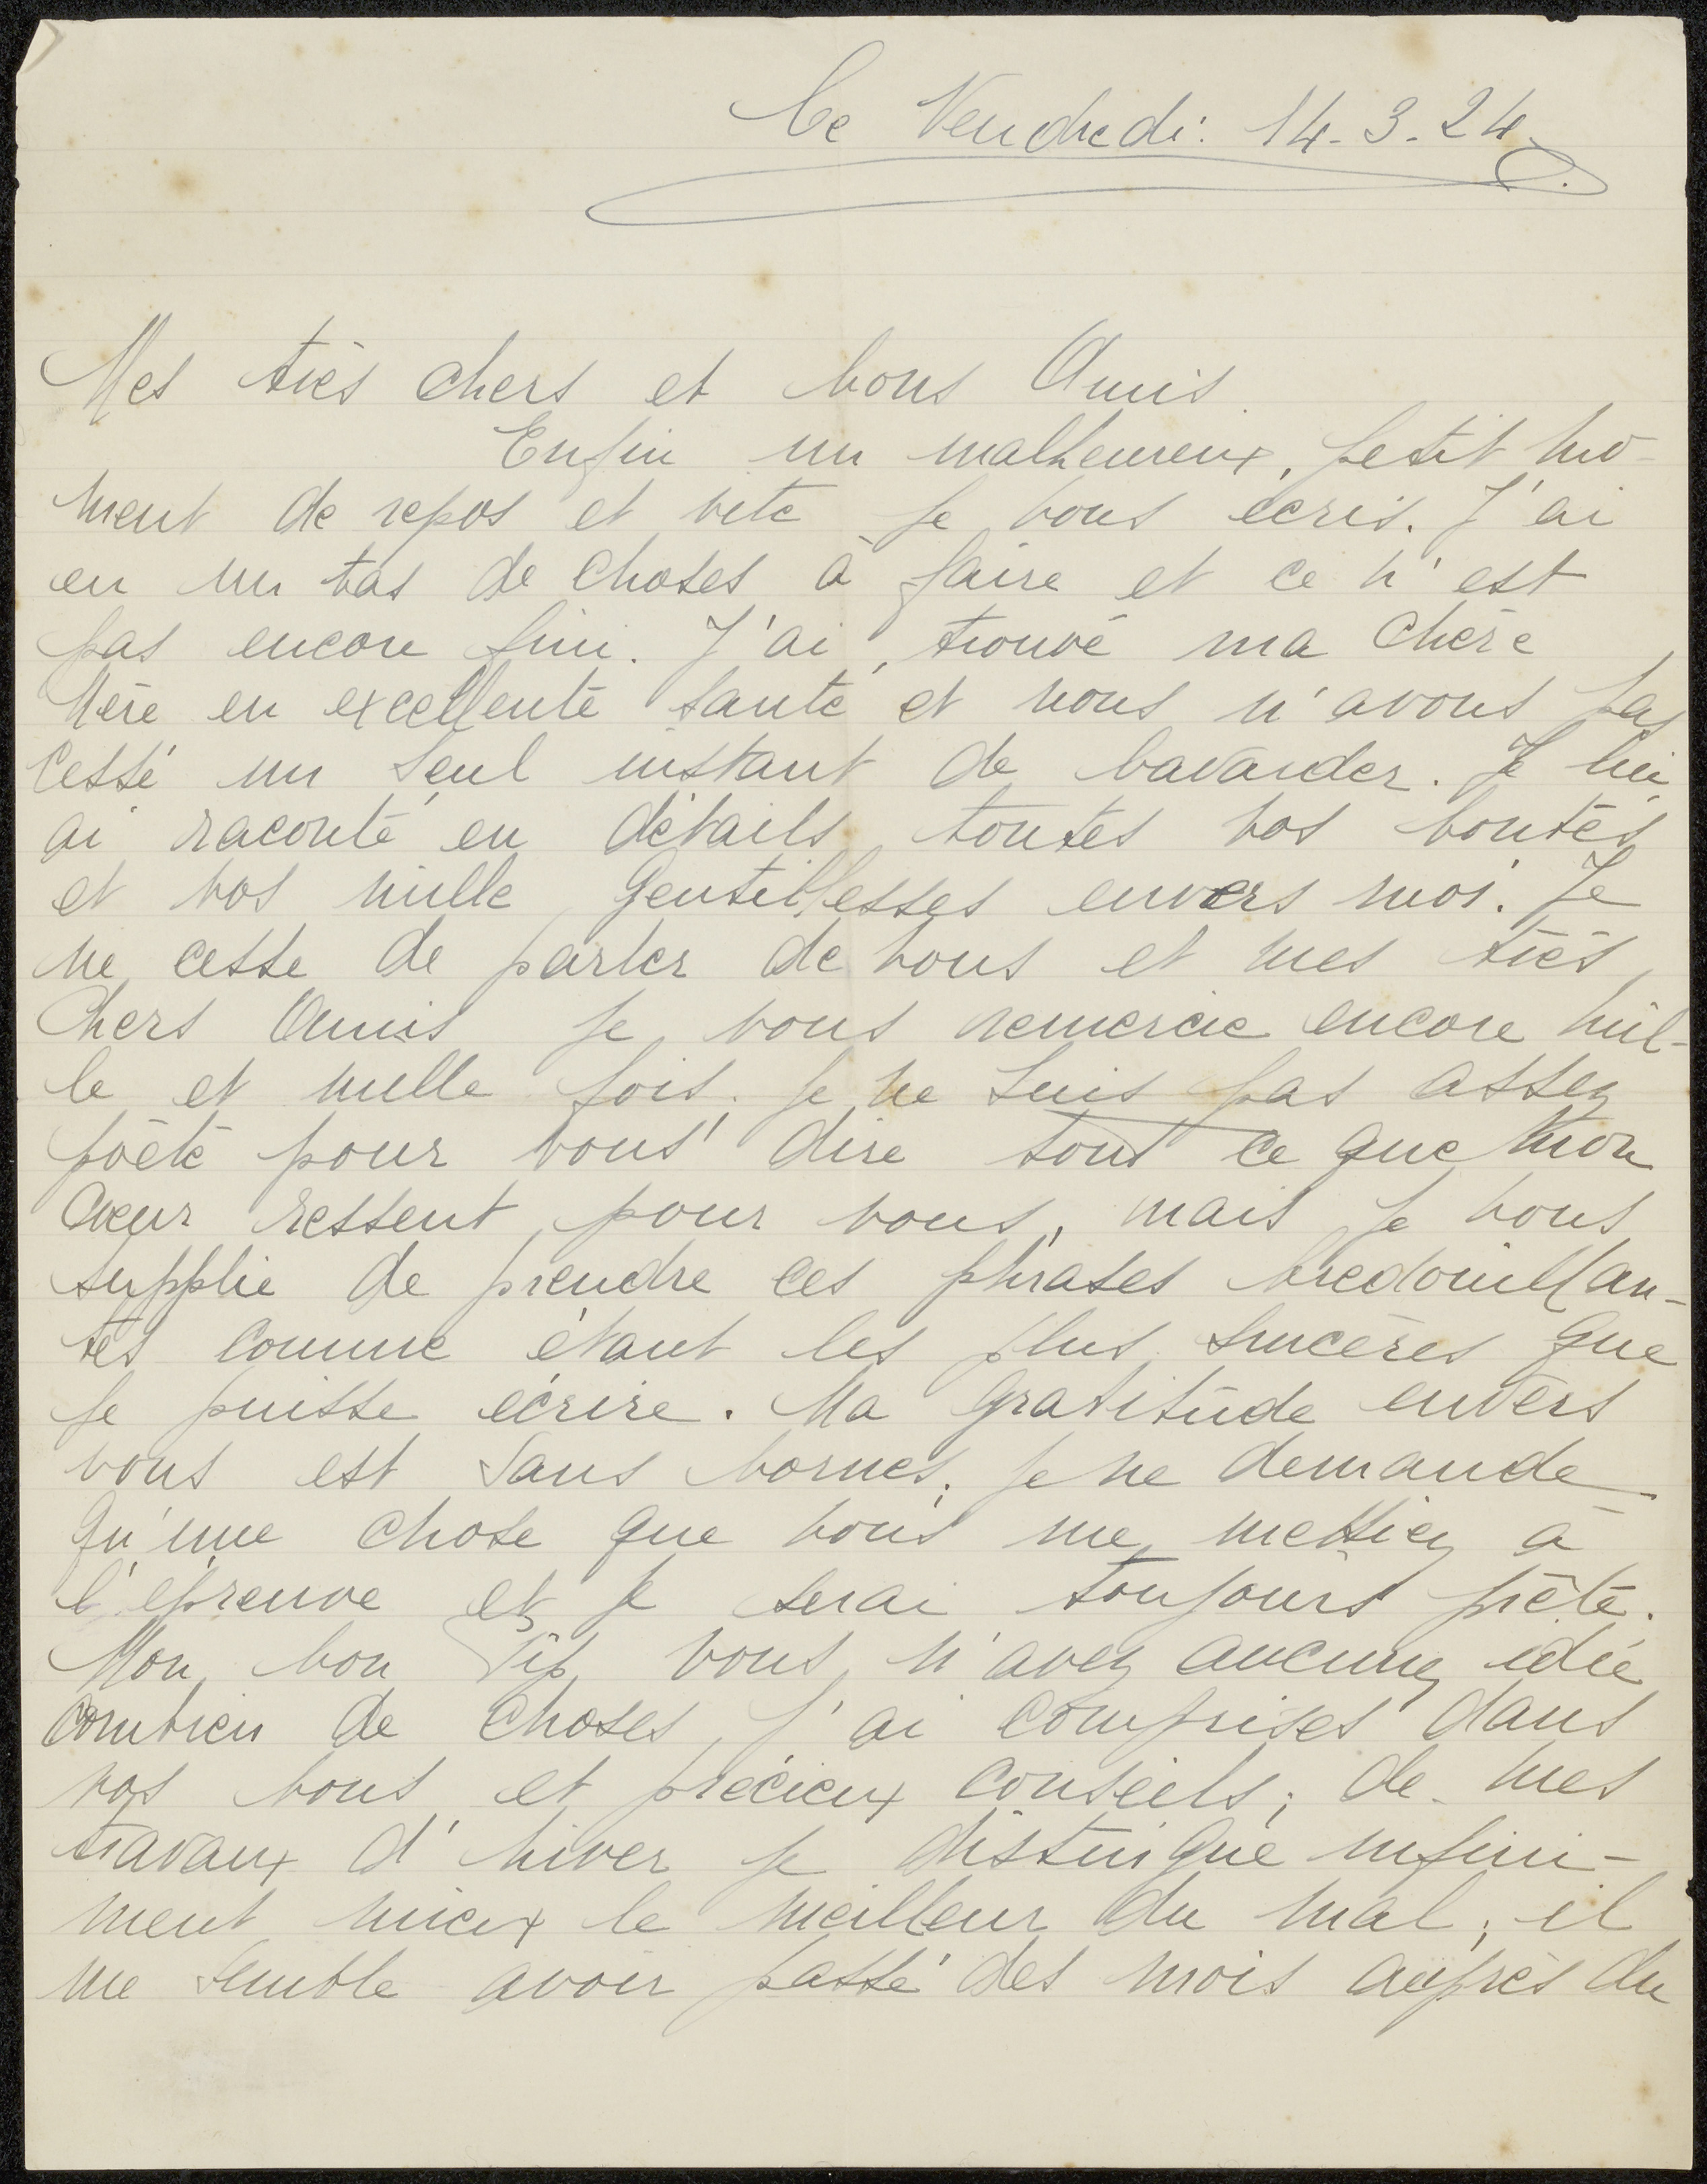 Ce Vendredi: 14-3-24.
Mes très chers et bons Amis.
Enfin un malheureux, petit mo-
ment de repos et vite je vous écris. J'ai
eu un tas de choses à faire et ce n'est
pas encore fini. J'ai trouvé ma chère
Mère en excellente santé et nous n'avons pas
cessé un seul instant de bavarder. Je lui
ai raconté en détails toutes vos bontés
et vos mille gentillesses envers moi. Je
ne cesse de parler de vous et mes très
chers Amis je vous remercie encore mil-
le et mille fois. Je ne suis pas assez
poète pour vous dire tout ce que mon
cœur ressent pour vous, mais je vous
supplie de prendre ces phrases bredouillan-
tes comme étant les plus sincères que
je puisse écrire. Ma gratitude envers
vous est sans bornes; je ne demande
qu'une chose que vous me mettiez à
l'épreuve et je serai toujours prète.
Mon bon Sip vous n'avez aucune idée
combien de choses j'ai comprises dans
vos bons et précieux conseils; de mes
travaux d'hiver je distingue infini-
ment mieux le meilleur du mal; il
me semble avoir passé des mois auprès du